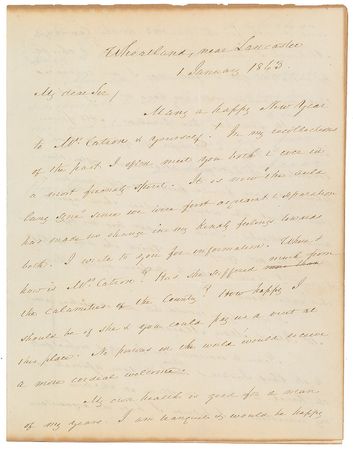 Wheatland, near Lancaster
1 January 1863.
My dear Sir,
Many a happy New Year
to Mrs. Catron & yourself! In my recollections
of the past I often meet you both & ever in
a most friendly spirit. It is now "the auld
lang syne" since we were first acquaint & separation
has made no change in my kindly feelings towards
both. I write to you for information. Where &
how is Mrs. Catron? Has she suffered much from
the calamities of the County? How happy I
should be if she & you could pay us a visit at
this place. No persons in the world would receive
a more cordial welcome.
My own health is good for a man
of my years. I am tranquil & would be happy